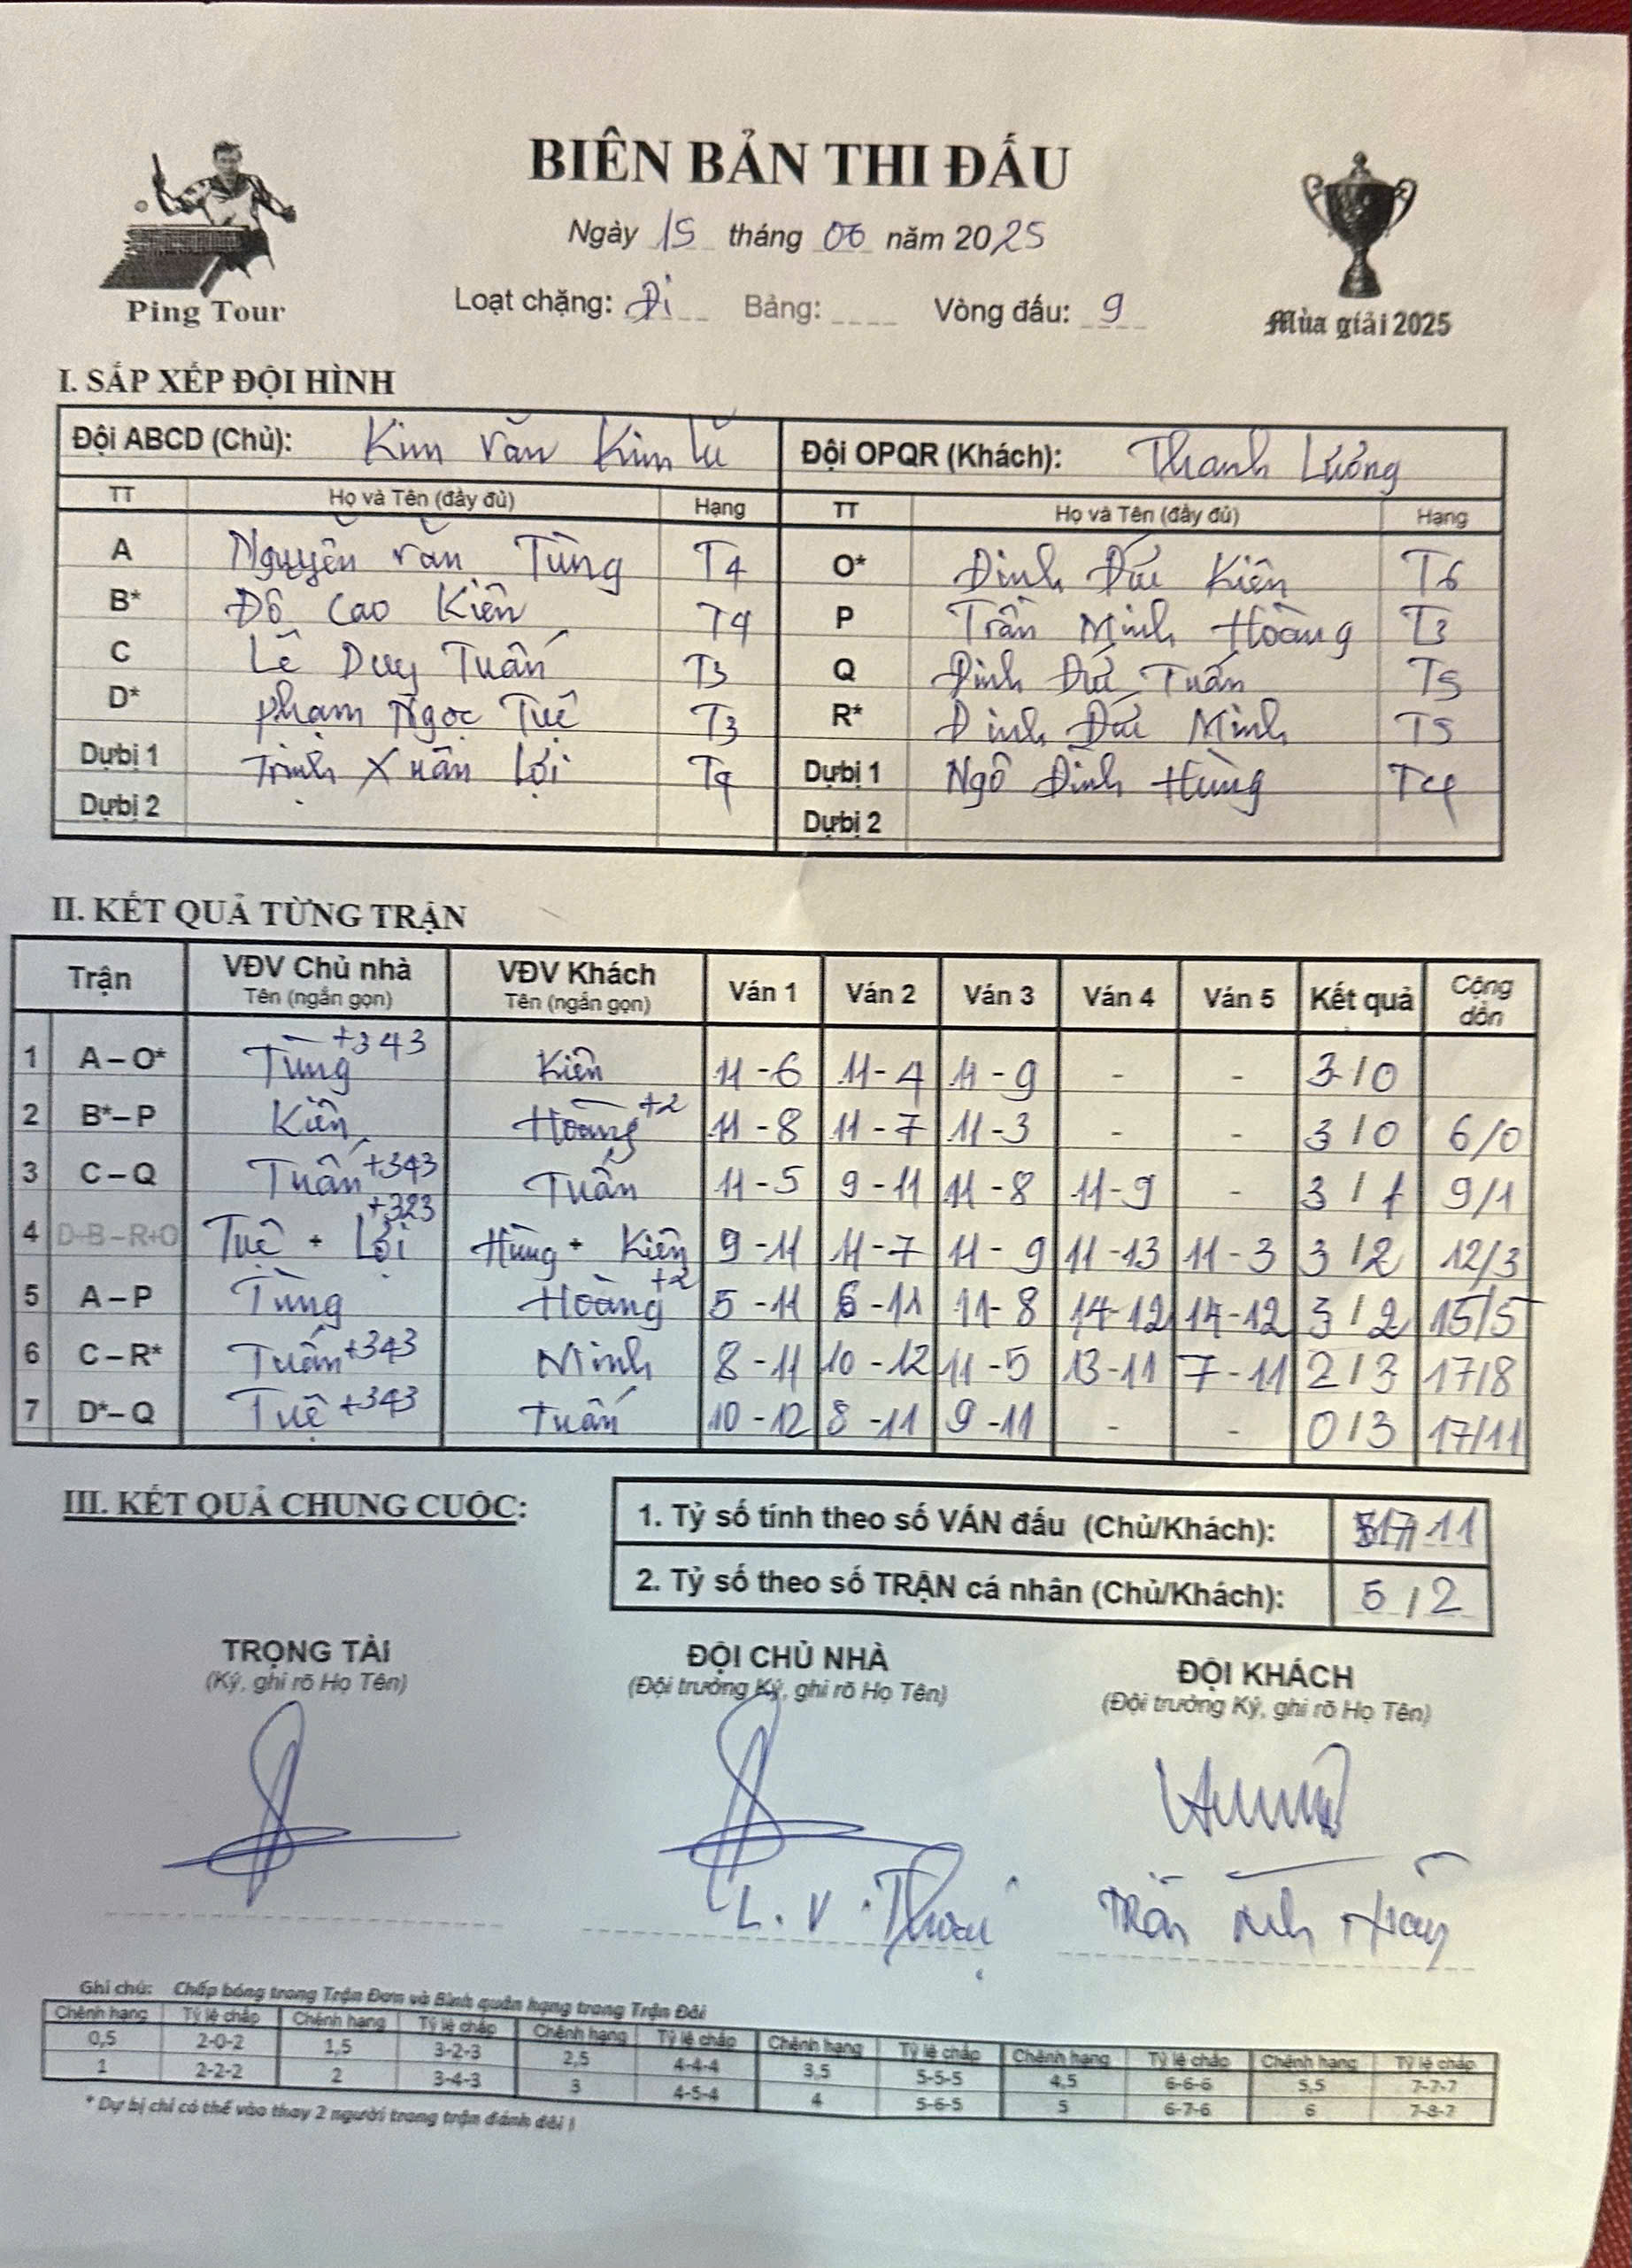 BIÊN BẢN THI ĐẤU
Ngày 15 tháng 06 năm 2025
Loạt chặng: Đi Bảng: ____ Vòng đấu: 9
Ping Tour
Mùa giải 2025
I. SẮP XẾP ĐỘI HÌNH
Đội ABCD (Chủ): Kim Văn Kim Lũ Đội OPQR (Khách): Thanh Lương
TT Họ và Tên (đầy đủ) Hạng TT Họ và Tên (đầy đủ) Hạng
A Nguyễn Văn Tùng T4 O* Đinh Đức Kiên T6
B* Đỗ Cao Kiên T4 P Trần Minh Hoàng T3
C Lê Duy Tuấn T3 Q Đinh Đức Tuấn T5
D* Phạm Ngọc Tuệ T3 R* Đinh Đức Minh T5
Dự bị 1 Trịnh Xuân Lợi T4 Dự bị 1 Ngô Đình Hùng T4
Dự bị 2 Dự bị 2
II. KẾT QUẢ TỪNG TRẬN
Trận VĐV Chủ nhà Tên (ngắn gọn) VĐV Khách Tên (ngắn gọn) Ván 1 Ván 2 Ván 3 Ván 4 Ván 5 Kết quả Cộng dồn
1 A – O* Tùng +343 Kiên 11 - 6 11 - 4 11 - 9 - - 3 / 0
2 B* – P Kiên Hoàng +2 11 - 8 11 - 7 11 - 3 - - 3 / 0 6/0
3 C – Q Tuấn +343 Tuấn 11 - 5 9 - 11 11 - 8 11 - 9 - 3 / 1 9/1
4 D+B – R+O Tuệ + Lợi +323 Hùng + Kiên 9 - 11 11 - 7 11 - 9 11 - 13 11 - 3 3 / 2 12/3
5 A – P Tùng Hoàng +2 5 - 11 6 - 11 11 - 8 14 - 12 14 - 12 3 / 2 15/5
6 C – R* Tuấn +343 Minh 8 - 11 10 - 12 11 - 5 13 - 11 7 - 11 2 / 3 17/8
7 D* – Q Tuệ +343 Tuấn 10 - 12 8 - 11 9 - 11 - - 0 / 3 17/11
III. KẾT QUẢ CHUNG CUỘC:
1. Tỷ số tính theo số VÁN đấu (Chủ/Khách): 17/11
2. Tỷ số theo số TRẬN cá nhân (Chủ/Khách): 5 / 2
TRỌNG TÀI ĐỘI CHỦ NHÀ ĐỘI KHÁCH
(Ký, ghi rõ Họ Tên) (Đội trưởng Ký, ghi rõ Họ Tên) (Đội trưởng Ký, ghi rõ Họ Tên)
L. V.
Trần
Ghi chú: Chấp bóng trong Trận Đơn và Bình quân hạng trong Trận Đôi
Chênh hạng Tỷ lệ chấp Chênh hạng Tỷ lệ chấp Chênh hạng Tỷ lệ chấp Chênh hạng Tỷ lệ chấp Chênh hạng Tỷ lệ chấp Chênh hạng Tỷ lệ chấp
0,5 2-0-2 1,5 3-2-3 2,5 4-4-4 3,5 5-5-5 4,5 6-6-6 5,5 7-7-7
1 2-2-2 2 3-4-3 3 4-5-4 4 5-6-5 5 6-7-6 6 7-8-7
* Dự bị chỉ có thể vào thay 2 người trong trận đánh đôi !